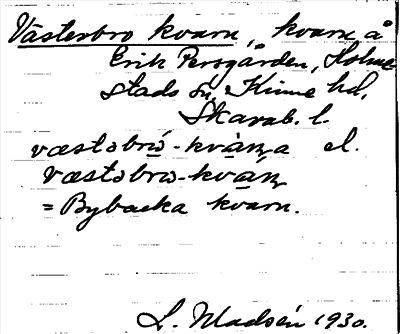 Västerbro kvarn, kvarn å
Erik Persgården, Holme
stads sn, Kinne hd,
Skarab. l.
væstəbrὼ-kvàṇa el.
væstəbrω-kváṇ
= Bybacka kvarn.
L. Madsén 1930.